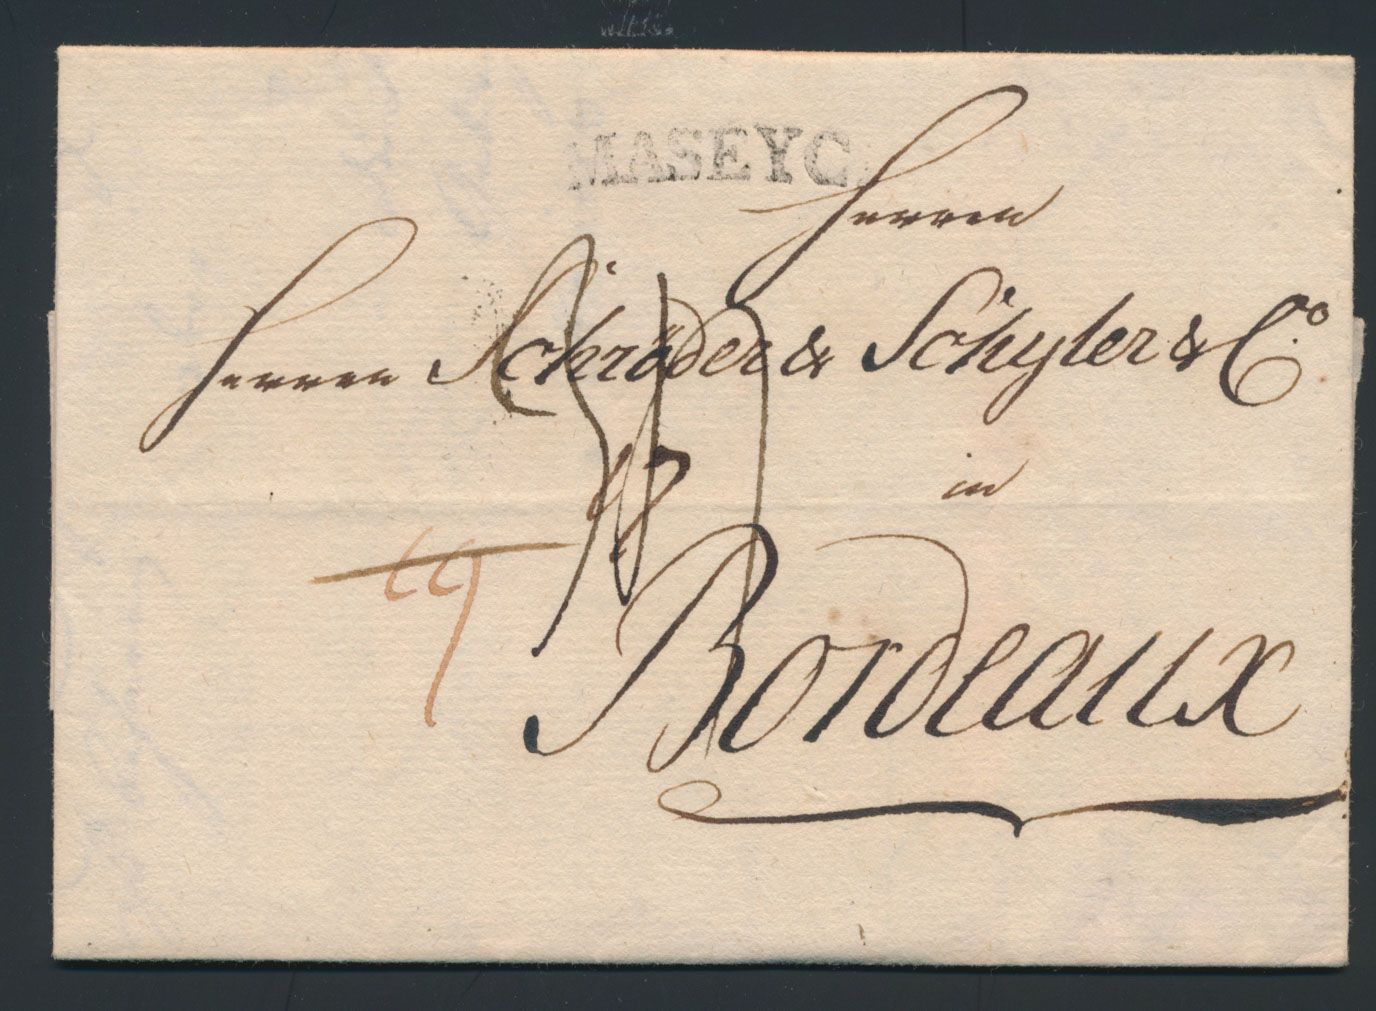 MASEYC
Herren
Herren Schröder & Schyler & Co.
in
Bordeaux